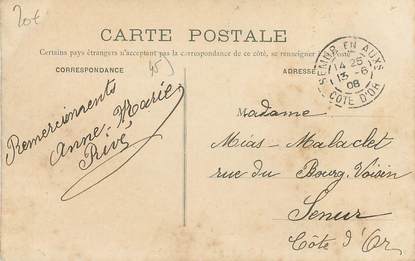 20€
CARTE POSTALE
Certains pays étrangers n'acceptant pas la correspondance de ce côté, se renseigner à la Poste
CORRESPONDANCE
ADRESSE
SEMUR EN AUXS
14 25
13 - 6
08
CÔTE D'OR
Remerciements
Anne-Marie
Rivé
Madame
Mias-Malaclet
rue du Bourg Voisin
Semur
Côte d'Or